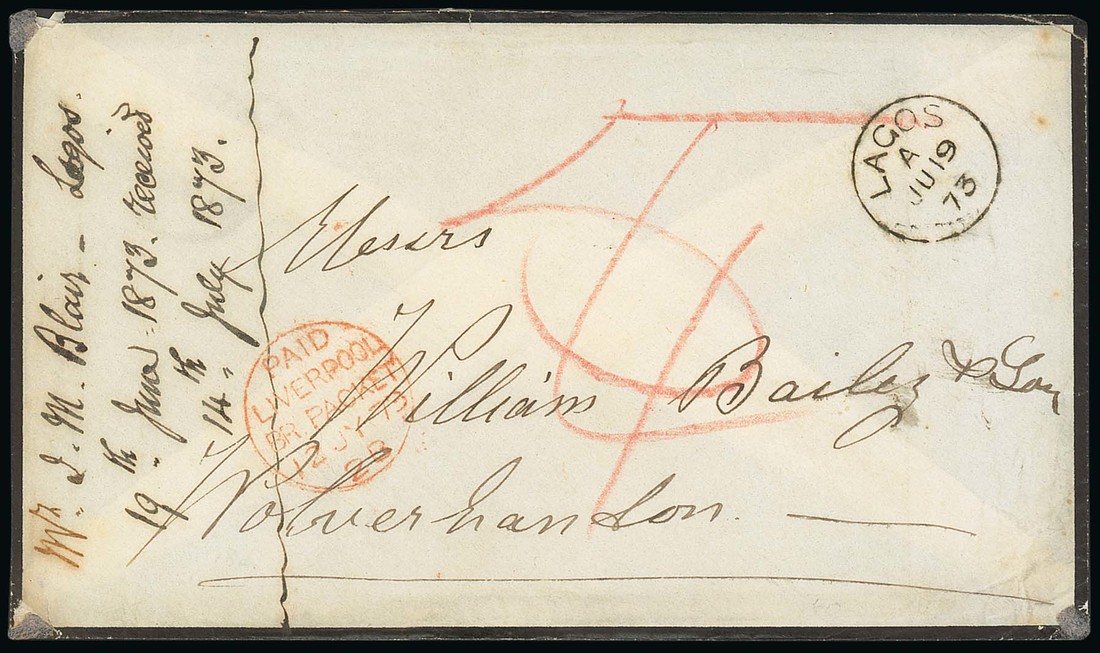 Mr. J. M. Blair - Lagos.
19th June 1873. received
14th July 1873.
LAGOS
A
JU 19
73
Messrs
William Bailey & Son
Wolverhamton.
PAID
LIVERPOOL
BR. PACKET
12 JY 73